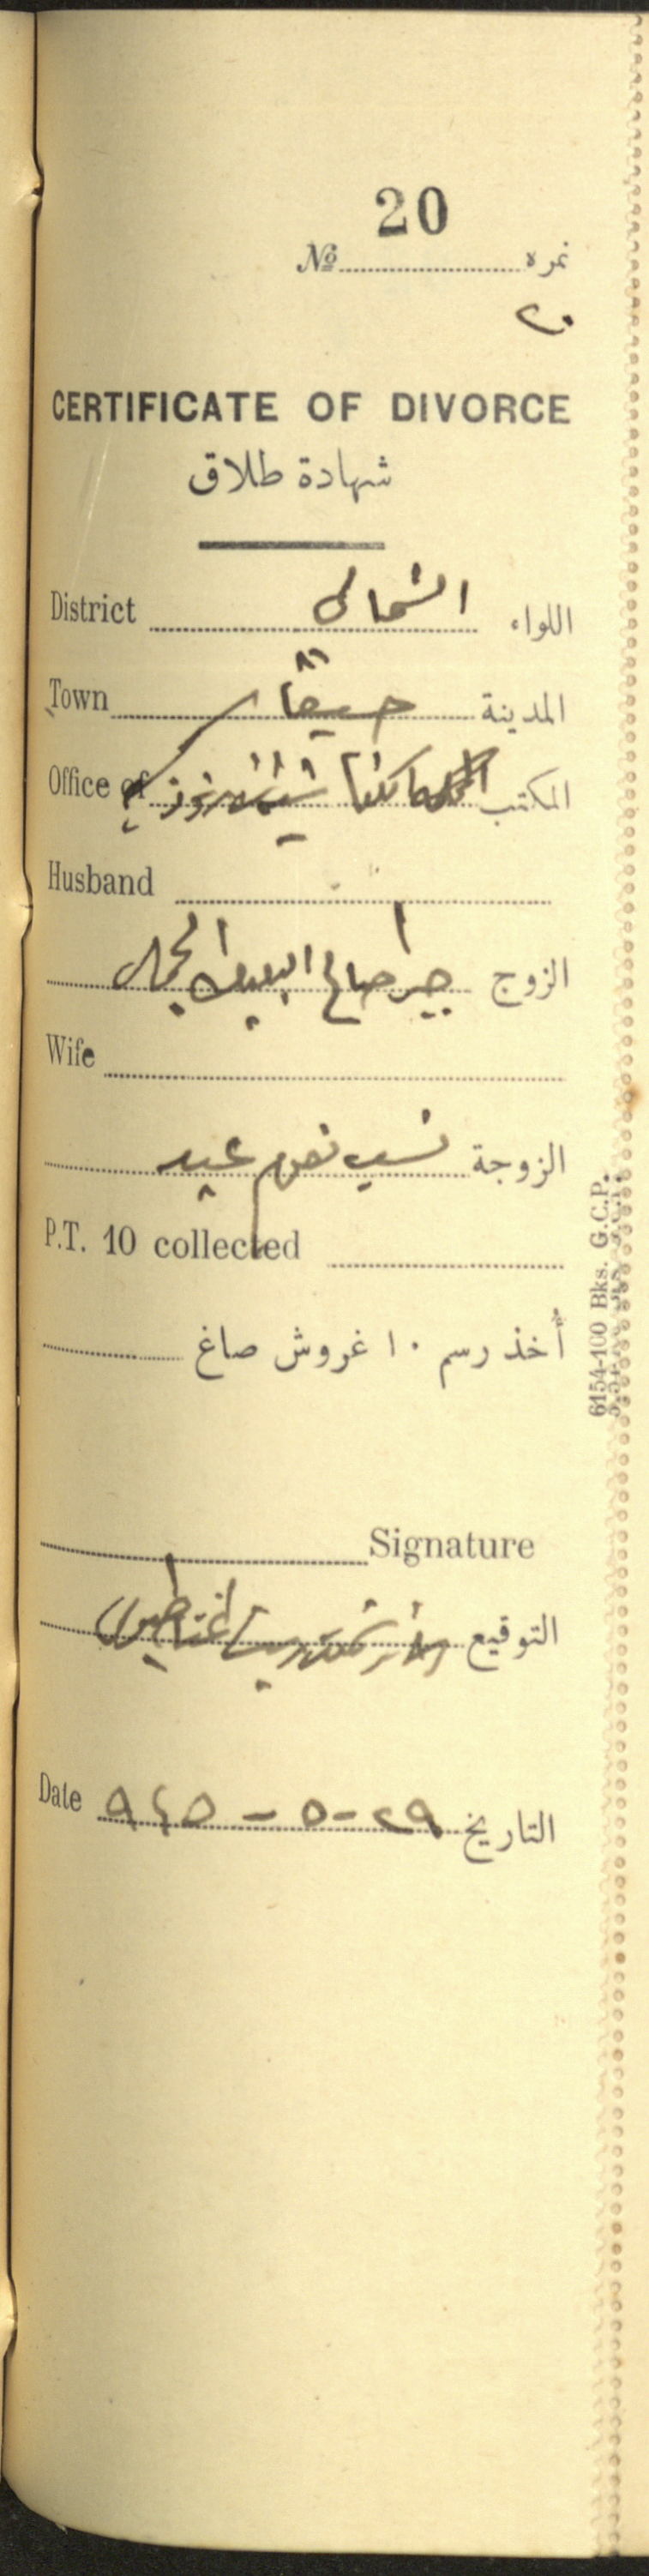 20
№ نمره
٢٠
CERTIFICATE OF DIVORCE
شهادة طلاق
District الشمالي اللواء
Town حيفا المدينة
Office of المكتب
Husband
الزوج جبر صالح
Wife
الزوجة عبيد
P.T. 10 collected
أخذ رسم ١٠ غروش صاغ
Signature
التوقيع
Date ٢٩-٥-٩٤٥ التاريخ
6154-100 Bks. G.C.P.